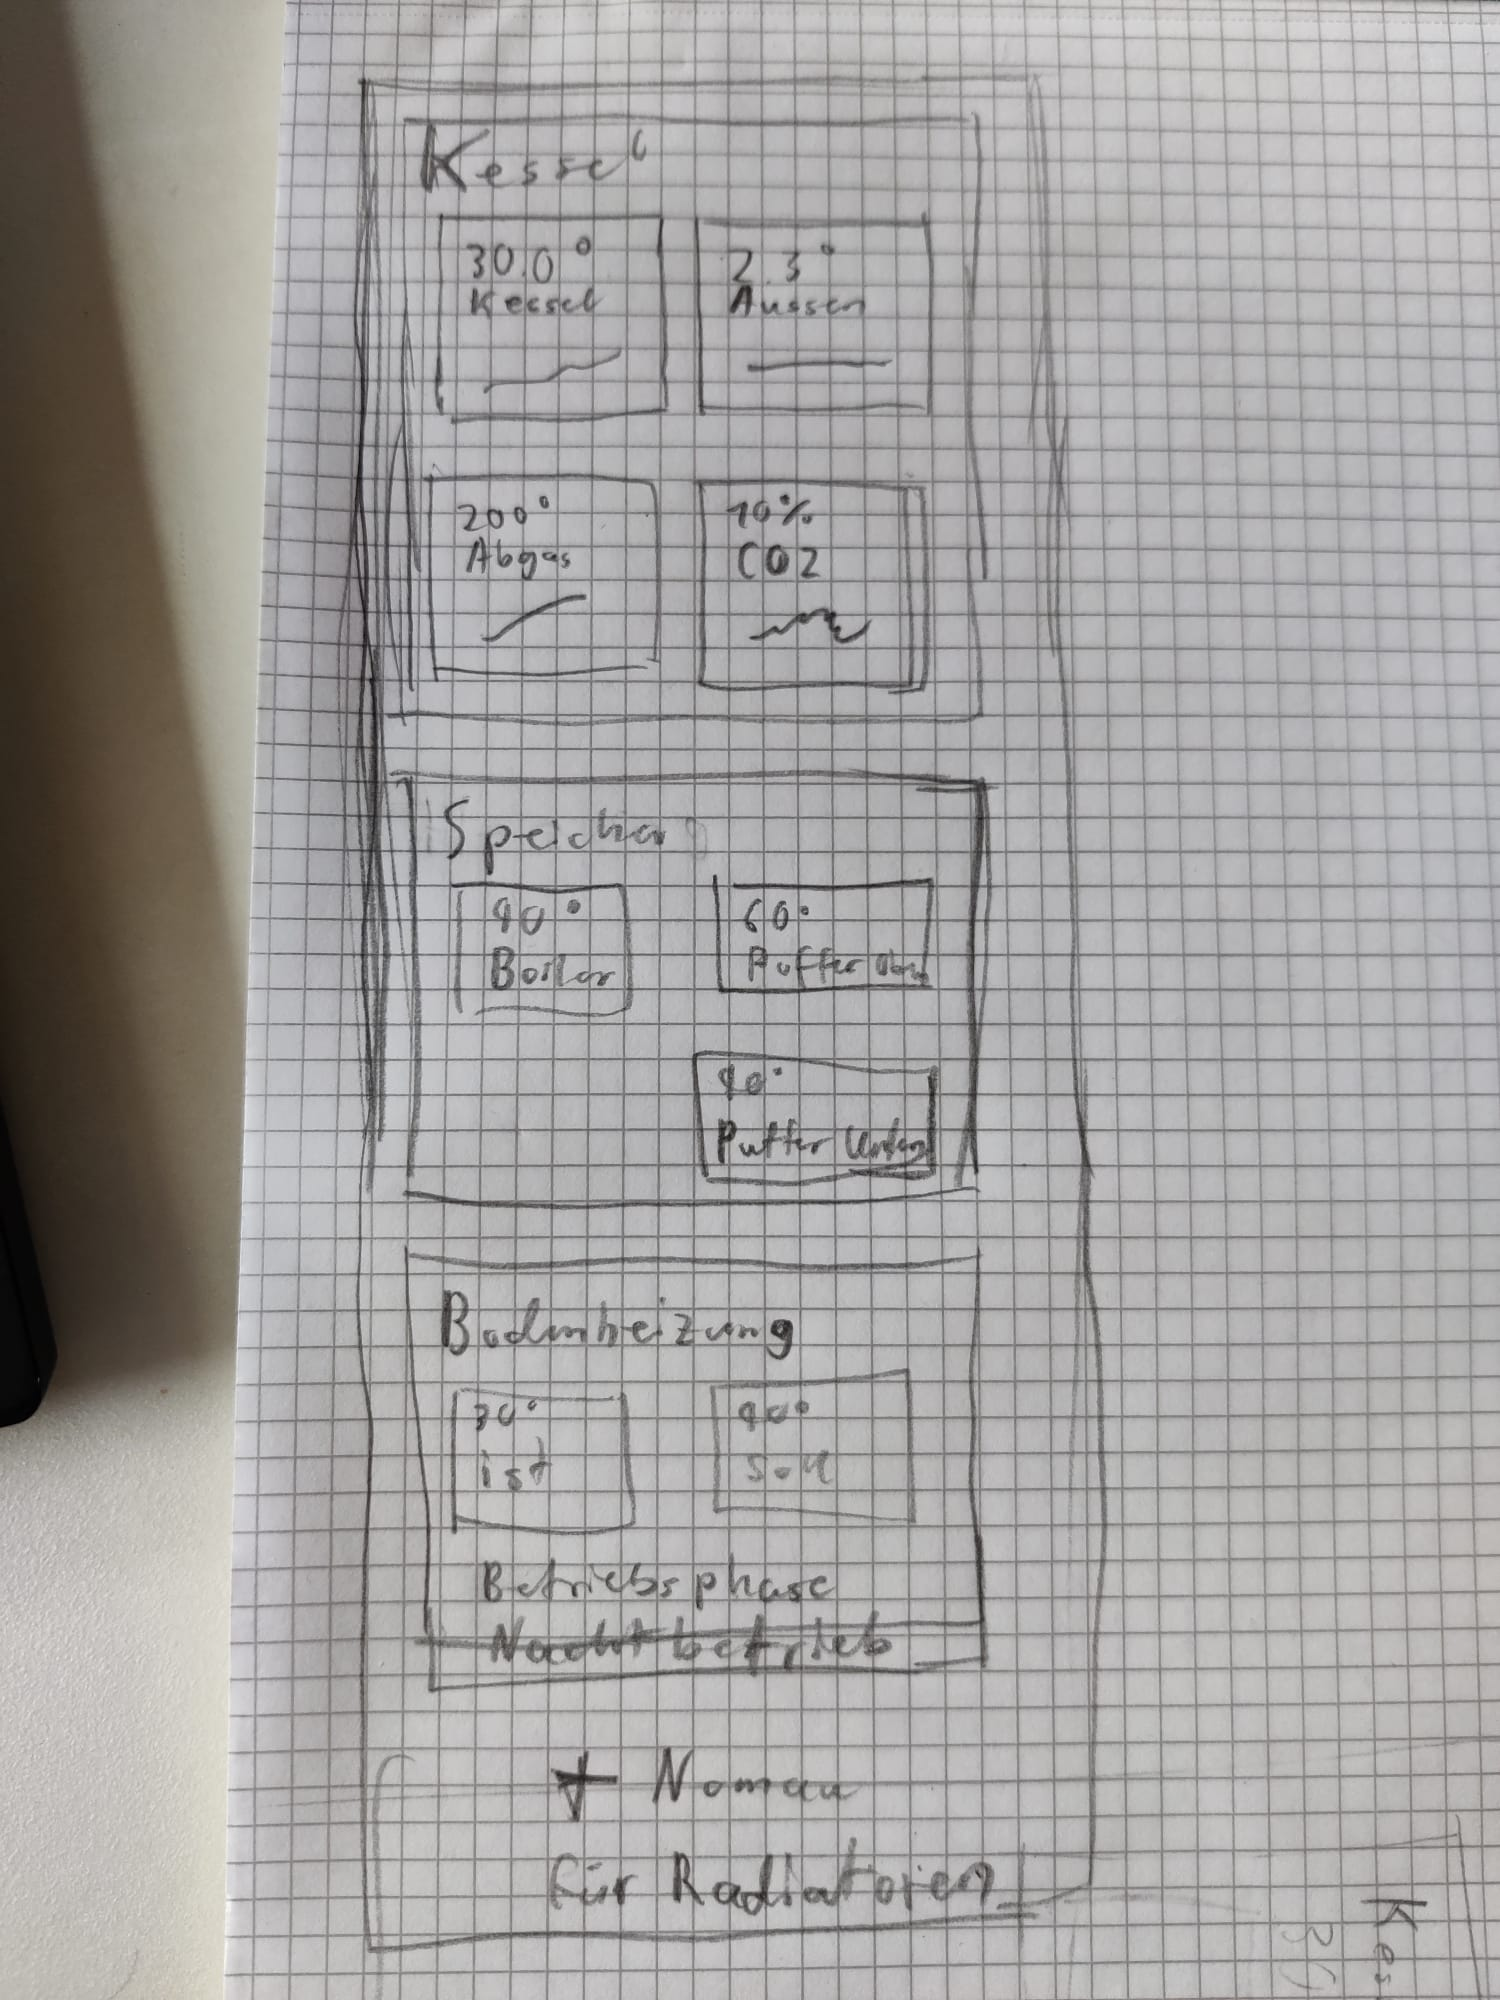 Kessel
30.0°
Kessel
2.3°
Aussen
200°
Abgas
10%
CO2
Speicher
40°
Boiler
60°
Puffer oben
40°
Puffer unten
Bodenheizung
30°
ist
40°
Soll
Betriebsphase
Nachtbetrieb
+ Nomau
für Radiatoren
Kes